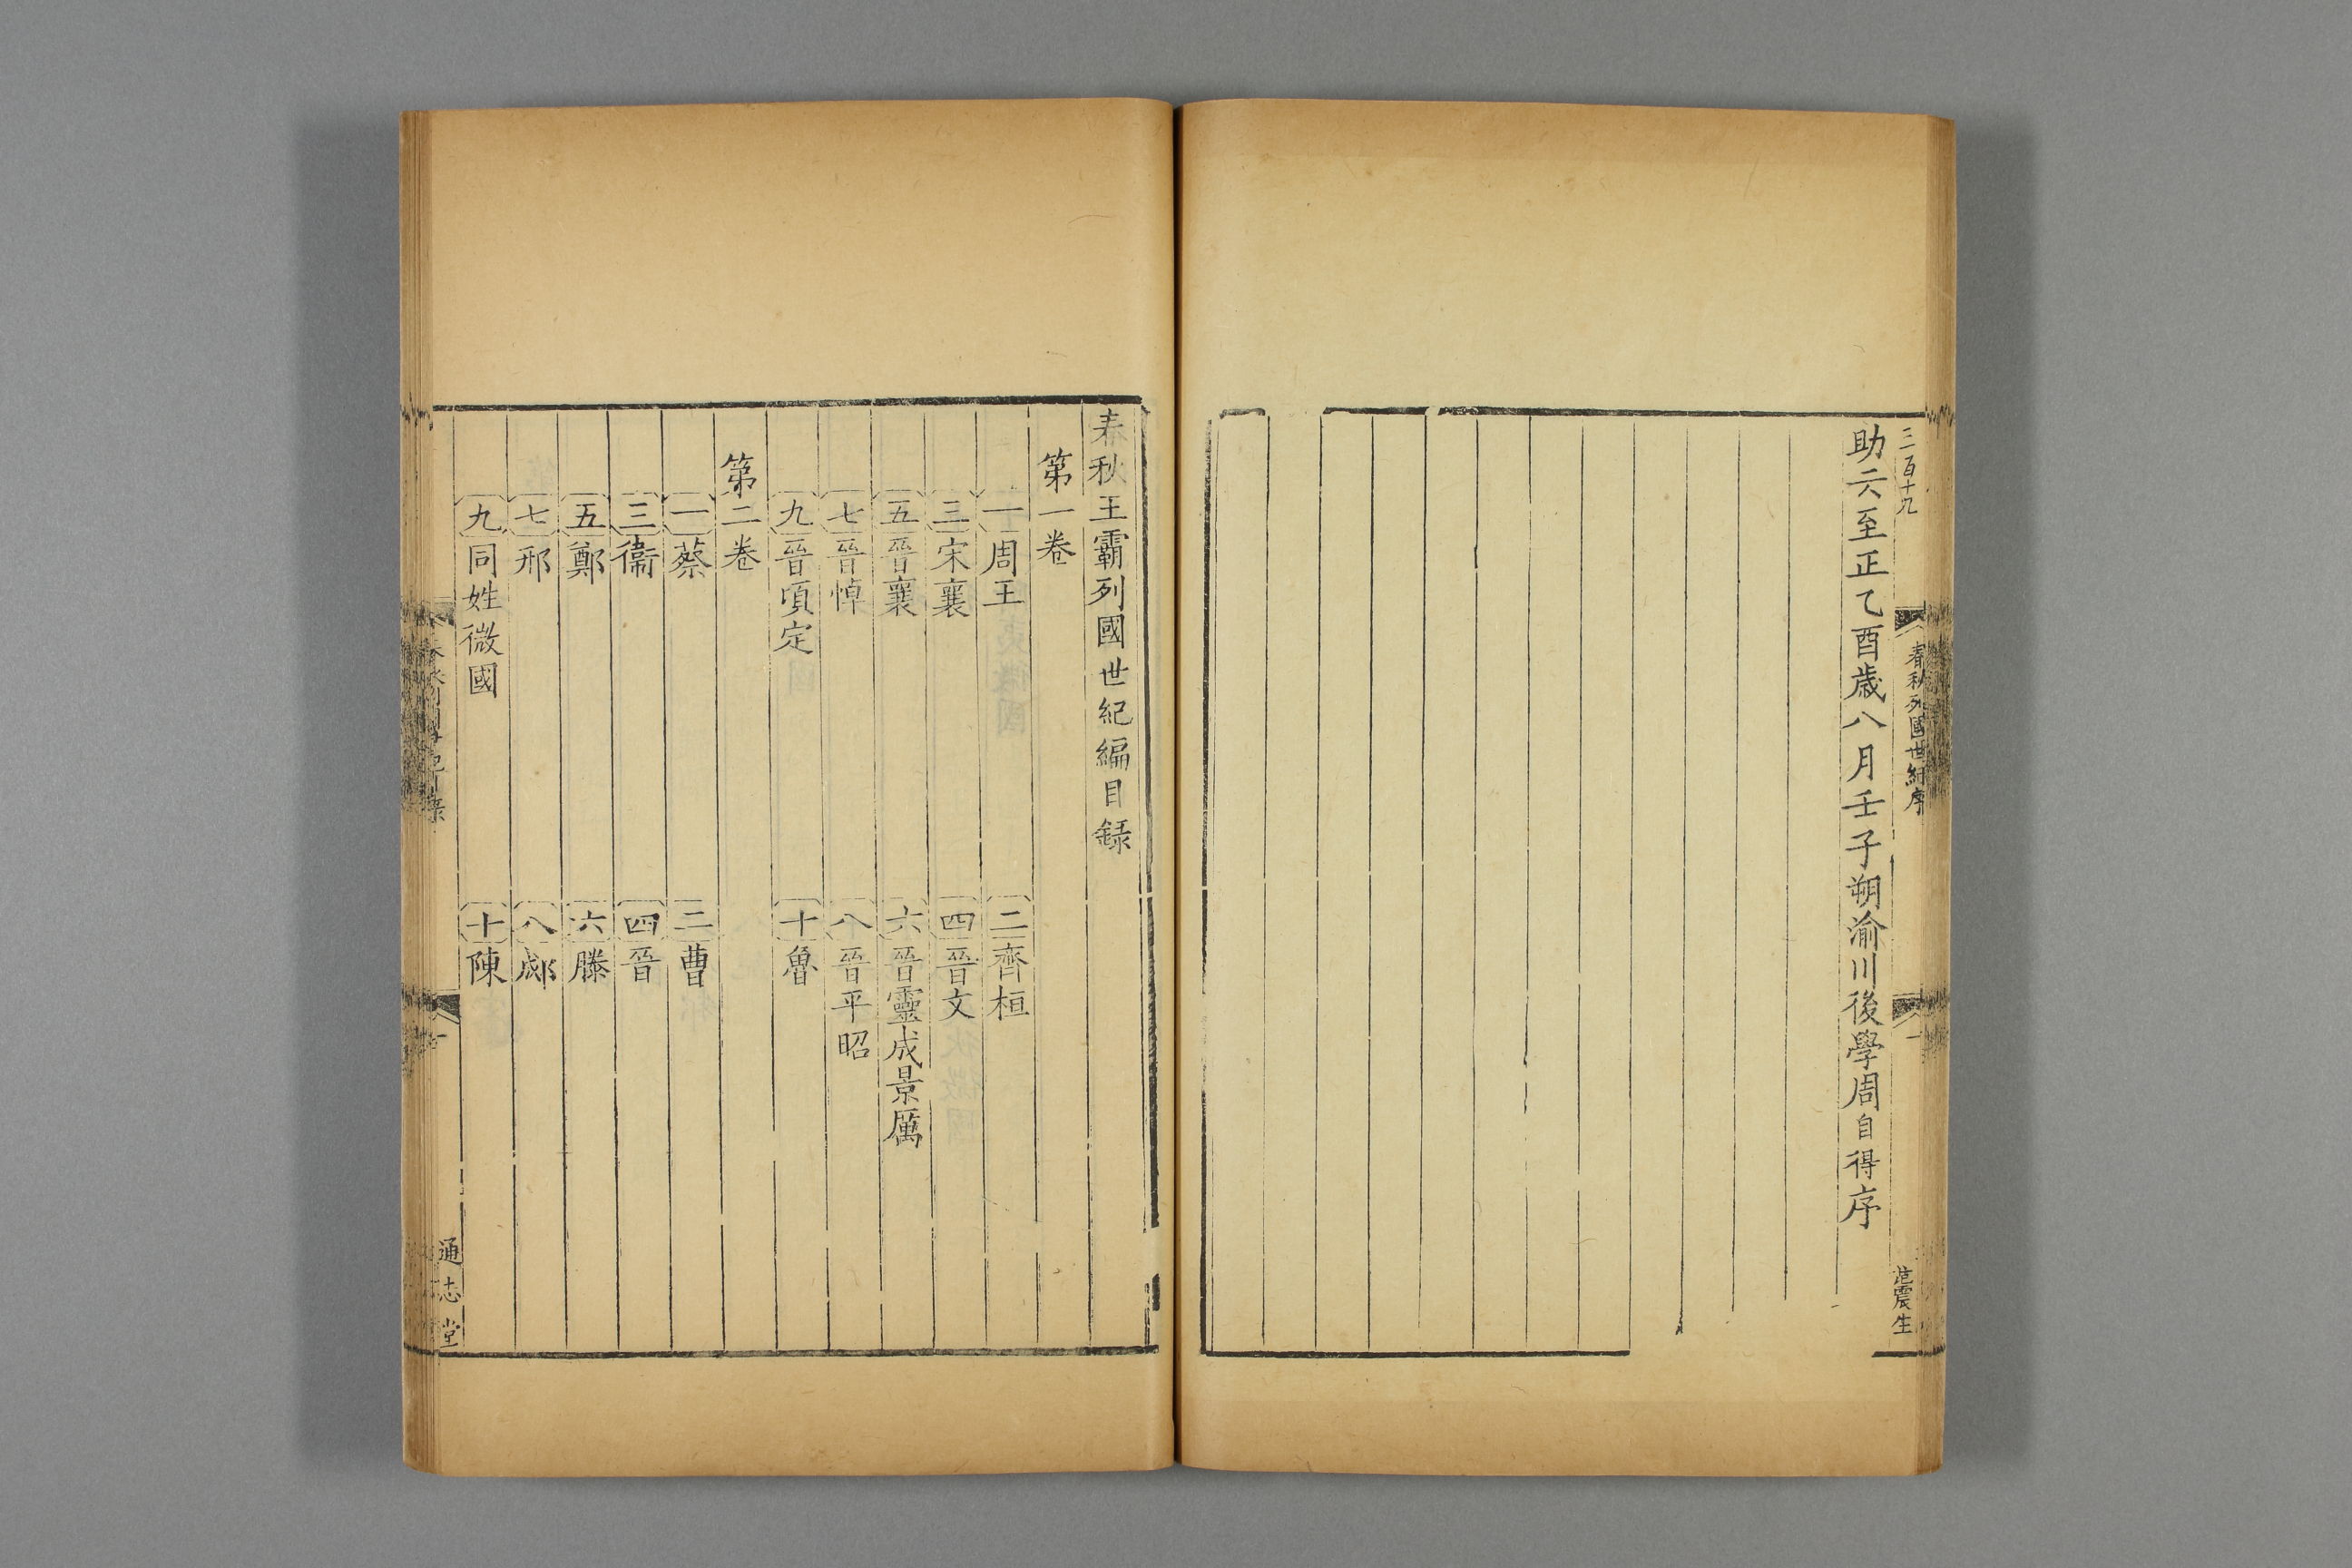 三百十九
春秋列國世紀序
一
范震生
助云至正乙酉歲八月壬子朔渝川後學周自得序
春秋王霸列國世紀編目録
第一卷
一周王
二齊桓
三宋襄
四晉文
五晉襄
六晉靈成景厲
七晉悼
八晉平昭
九晉頃定
十魯
第二卷
一蔡
二曹
三衞
四晉
五鄭
六滕
七邢
八郕
九同姓微國
十陳
通志堂